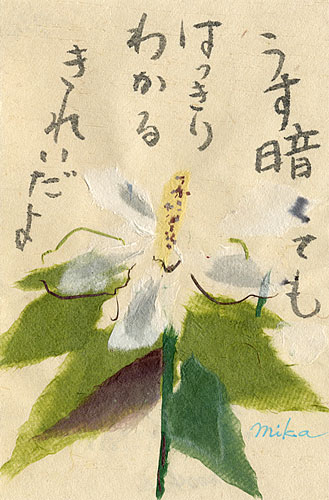 うす暗くても
はっきり
わかる
きれいだよ
mika